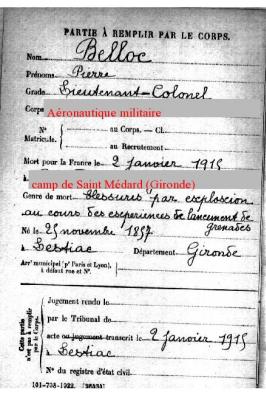 PARTIE À REMPLIR PAR LE CORPS.
Nom Belloc
Prénoms Pierre
Grade Lieutenant-Colonel
Corps Aéronautique militaire
N° Matricule. { au Corps. — Cl.
au Recrutement
Mort pour la France le 2 Janvier 1915
à camp de Saint Médard (Gironde)
Genre de mort blessures par explosion
au cours des expériences de lancement de
grenades
Né le 25 novembre 1857
à Lestiac Département Gironde
Arr' municipal (p' Paris et Lyon),
à défaut rue et N°.
Cette partie n'est pas à remplir par le Corps.
Jugement rendu le
par le Tribunal de
acte ou jugement transcrit le 2 Janvier 1915
à Lestiac
N° du registre d'état civil
101-708-1922.